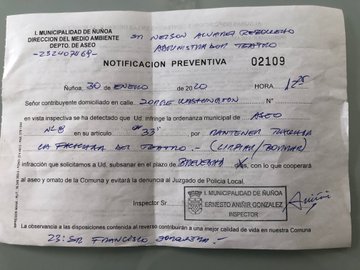 I. MUNICIPALIDAD DE ÑUÑOA
DIRECCION DEL MEDIO AMBIENTE
DEPTO. DE ASEO
-232407469-
SR NELSON ALVAREZ REBOLLEDO
ADMINISTRADOR TEATRO
NOTIFICACION PREVENTIVA 02109
Ñuñoa, 30 ENERO 2020 HORA 1:25
Señor contribuyente domiciliado en calle JORGE WASHINGTON N°
en vista inspectiva se ha detectado que Ud. infringe la ordenanza municipal de ASEO
N°8 en su artículo "33" MANTENER
LA FACHADA DEL TEATRO.- (LIMPIAR/BORRAR)
infracción que solicitamos a Ud. subsanar en el plazo de BREVEDAD con lo que cooperando
al aseo y ornato de la Comuna y evitará la denuncia al Juzgado de Policía Local.
Inspector Sr.
I. MUNICIPALIDAD DE ÑUÑOA
ERNESTO ANIÑIR GONZALEZ
INSPECTOR
La observancia a las disposiciones contenida al reverso contribuirá a una mejor calidad de vida en nuestra Comuna
23: SR FRANCISCO